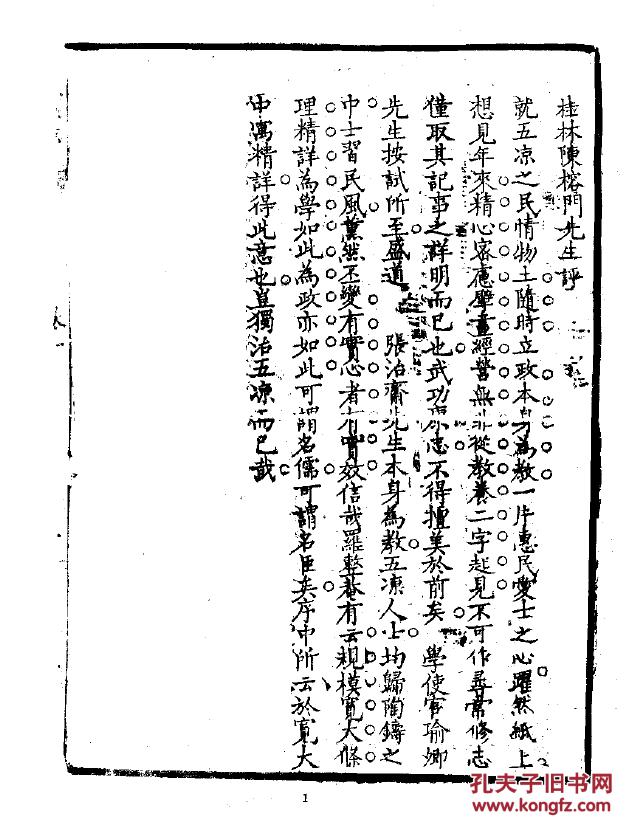 桂林陳榕門先生評
就五凉之民情物土隨時立政本身為教一片惠民愛士之心躍然紙上
想見年來精心宻慮壁畫經營無非從教養二字起見不可作尋常修志
僅取其記事之詳明而已也武功志不得擅美於前矣 學使官瑜卿
先生按試所至盛道 張治齋先生本身為教五凉人士均歸陶鑄之
中士習民風薰然丕變有實心者有實效信哉羅整菴有云規模寬大條
理精詳為學如此為政亦如此可謂名儒可謂名臣矣序中所云於寬大
中寓精詳得此意也豈獨治五凉而已哉
卷一
1
孔夫子旧书网
www.kongfz.com